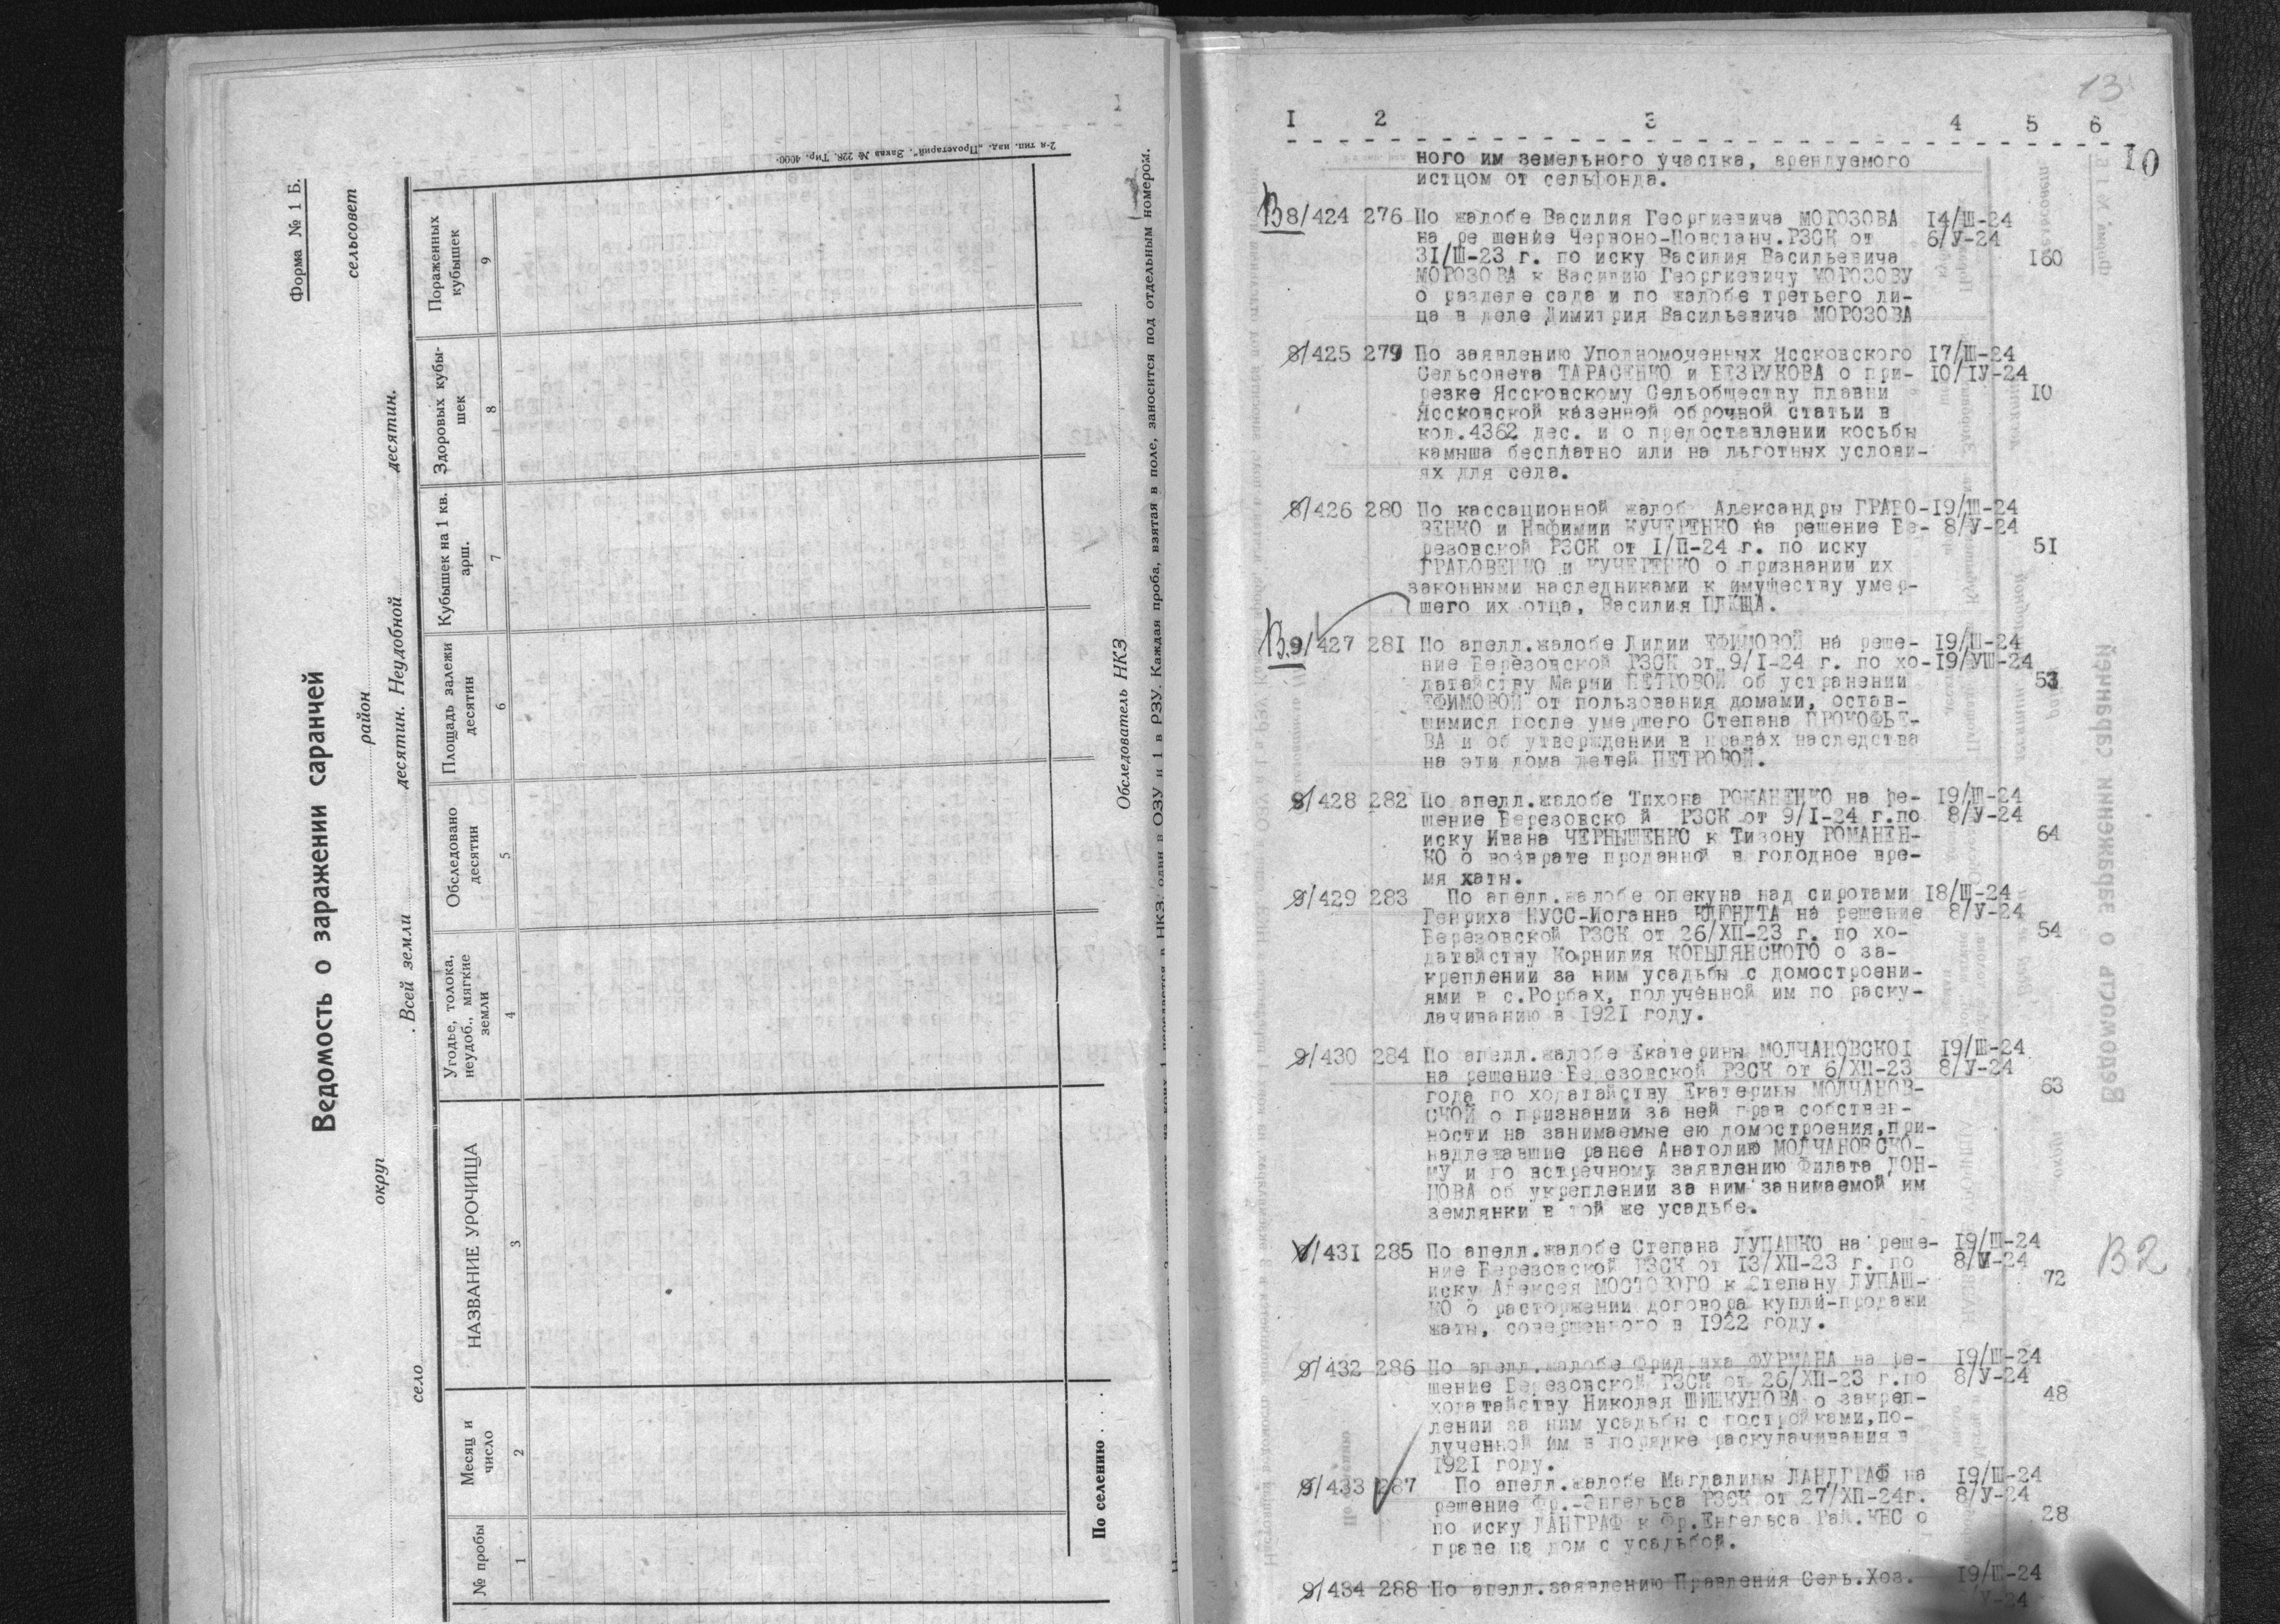 Форма № 1 Б.
Ведомость о заражении саранчей
округ район сельсовет
село . Всей земли десятин. Неудобной десятин.
№ пробы
Месяц и число
НАЗВАНИЕ УРОЧИЩА
Угодье, толока, неудоб., мягкие земли
Обследовано десятин
Площадь залежи десятин
Кубышек на 1 кв. арш.
Здоровых кубышек
Пораженных кубышек
1 2 3 4 5 6 7 8 9
По селению . . .
Обследователь НКЗ
в НКЗ, один в ОЗУ и 1 в РЗУ. Каждая проба, взятая в поле, заносится под отдельным номером.
2-я тип. изд. „Пролетарий“. Заказ № 228. Тир. 4000.
13
I 2 3 4 5 6
10
ного им земельного участка, арендуемого
истцом от сельфонда.
В 8/424 276 По жалобе Василия Георгиевича МОРОЗОВА 14/Ш-24
на ре шение Червоно-Повстанч.РЗСК от 6/У-24
31/Ш-23 г. по иску Василия Васильевича 160
МОРОЗОВА к Василию Георгиевичу МОРОЗОВУ
о разделе сада и по жалобе третьего ли-
ца в деле Димитрия Васильевича МОРОЗОВА
8/425 279 По заявлению Уполномоченных Яссковского 17/Ш-24
Сельсовета ТАРАСЕНКО и БЕЗРУКОВА о при- 10/IУ-24
резке Яссковскому Сельобществу плавни 10
Яссковской казенной оброчной статьи в
кол.4362 дес. и о предоставлении косьбы
камыша бесплатно или на льготных услови-
ях для села.
8/426 280 По кассационной жалоб Александры ГРАБО-19/Ш-24
ВЕНКО и Нафимии КУЧЕРЕНКО на решение Бе- 8/У-24
резовской РЗСК от I/П-24 г. по иску 51
ГРАБОВЕНКО и КУЧЕРЕНКО о признании их
законными наследниками к имуществу умер-
шего их отца, Василия ПЛЮЩА.
В 9/427 281 По апелл.жалобе Лидии ЕФИМОВОЙ на реше- 19/Ш-24
ние Березовской РЗСК от 9/I-24 г. по хо-19/УШ-24
датайству Марии ПЕТРОВОЙ об устранении 53
ЕФИМОВОЙ от пользования домами, остав-
шимися после умершего Степана ПРОКОФЬЕ-
ВА и об утверждении в правах наследства
на эти дома детей ПЕТРОВОЙ.
8/428 282 По апелл.жалобе Тихона РОМАНЕНКО на ре- 19/Ш-24
шение Березовско й РЗСК от 9/I-24 г.по 8/У-24
иску Ивана ЧЕРНЫШЕНКО к Тизону РОМАНЕН- 64
КО о возврате проданной в голодное вре-
мя хаты.
9/429 283 По апелл.жалобе опекуна над сиротами 18/Ш-24
Генриха НУСС-Иоганна на решение 8/У-24
Березовской РЗСК от 26/ХП-23 г. по хо- 54
датайству Корнилия КОБЫЛЯНСКОГО о за-
креплении за ним усадьбы с домостроени-
ями в с.Рорбах, полученной им по раску-
лачиванию в 1921 году.
9/430 284 По апелл.жалобе Екатерины МОЛЧАНОВСКОI 19/Ш-24
на решение Березовской РЗСК от 6/ХП-23 8/У-24
года по ходатайству Екатерины МОЛЧАНОВ- 63
СКОЙ о признании за ней прав собствен-
ности на занимаемые ею домостроения,при-
надлежавшие ранее Анатолию МОЛЧАНОВСКО-
МУ и по встречному заявлению Филата ДОН-
ЦОВА об укреплении за ним занимаемой им
землянки в той же усадьбе.
/431 285 По апелл.жалобе Степана ЛУПАШКО на реше- 19/Ш-24
ние Березовской РЗСК от 13/ХП-23 г. по 8/У-24 В2
иску Алексея МОСТОВОГО к Степану ЛУПАШ- 72
КО о расторжении договора купли-продажи
жаты, совершенного в 1922 году.
9/432 286 По апелл.жалобе Фридриха ФУРМАНА на ре- 19/Ш-24
шение Березовской РЗСК от 26/ХП-23 г.по 8/У-24
ходатайству Николая ШИШКУНОВА о закреп- 48
лении за ним усадьбы с постройками,по-
лученной им в порядке раскулачивания в
1921 году.
9/433 287 По апелл.жалобе Магдалины ЛАНДГРАФ на 19/Ш-24
решение Фр.-Энгельса РЗСК от 27/ХП-24г. 8/У-24
по иску ЛАНГРАФ к Фр.Енгельса Рай.КНС о 28
праве на дом с усадьбой.
9/434 288 По апелл.заявлению Правления Сель.Хоз. 19/Ш-24
/У-24